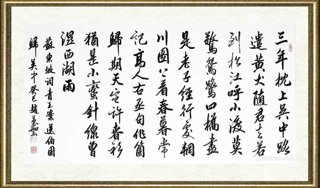 三年枕上吳中路
遣黃犬隨君去若
到松江呼小渡莫
驚鴛鷺四橋盡
是老子經行處輞
川圖上看春暮常
記高人右丞句作箇
歸期天定許春衫
猶是小蠻針線曾
溼西湖雨
蘇東坡詞青玉案送伯固
歸吳中 癸巳趙